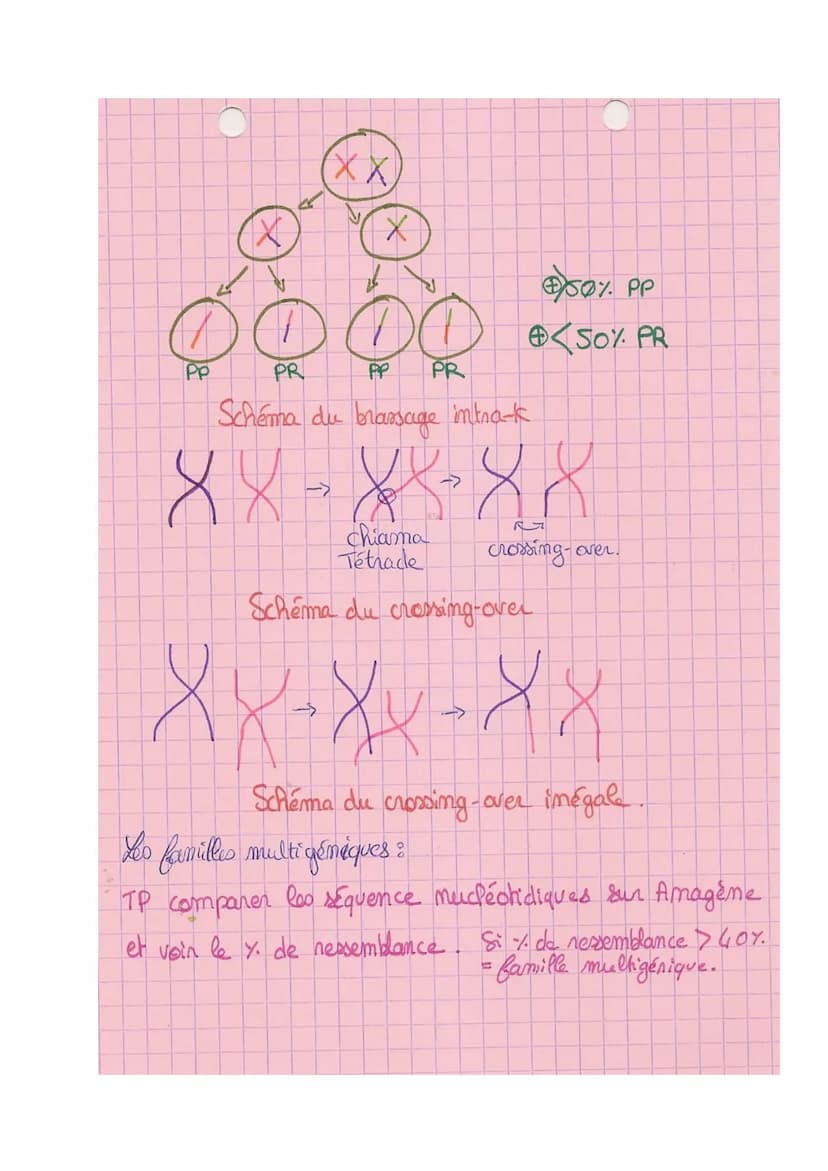 ⊕>50% PP
⊕<50% PR
PP PR PP PR
Schéma du brassage intra-k
chiama
Tétrade
crossing-over.
Schéma du crossing-over
Schéma du crossing-over inégale.
Les familles multigéniques :
TP comparer les séquence nucléotidiques sur Anagène
et voir le % de ressemblance. Si % de ressemblance > 40%.
= famille multigénique.